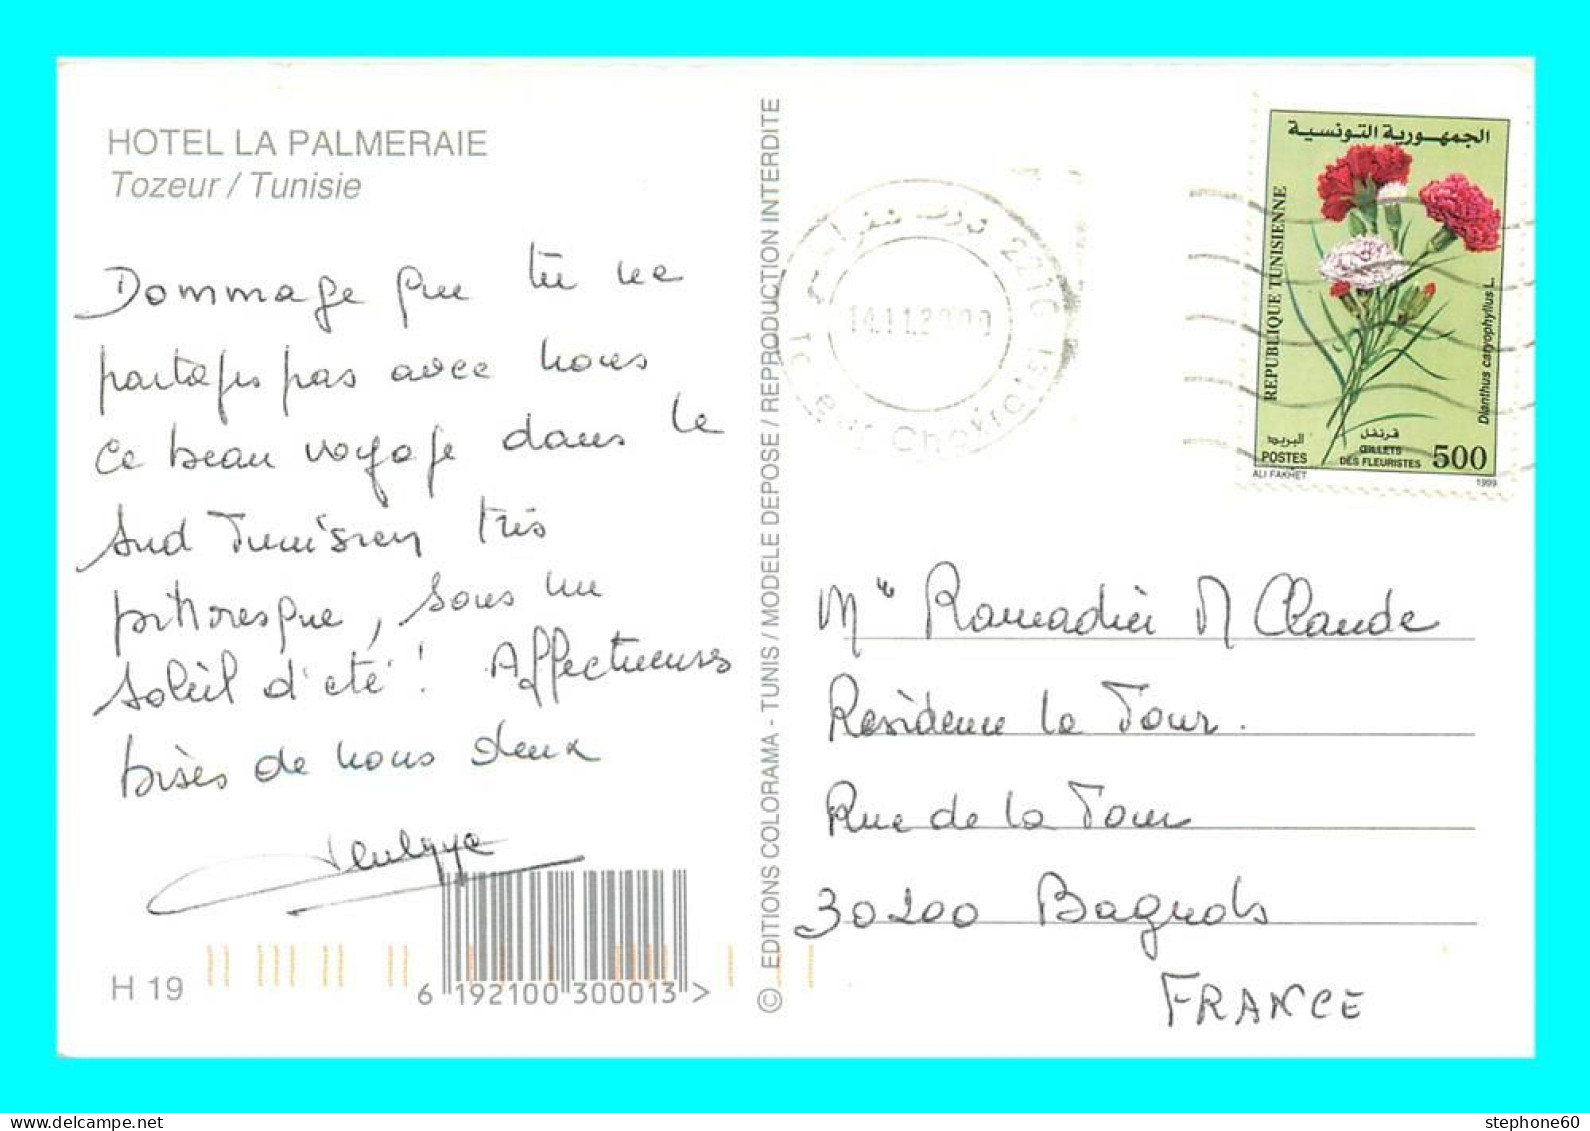 HOTEL LA PALMERAIE
Tozeur / Tunisie
Dommage que tu ne
partages pas avec nous
ce beau voyage dans le
Sud Tunisien très
pittoresque, sous un
soleil d'été ! Affectueuses
bises de nous deux
H 19
6 192100 300013 >
© EDITIONS COLORAMA - TUNIS / MODELE DEPOSE / REPRODUCTION INTERDITE
توزر شقراطسي 2216
14.11.2000
Tozeur Chokratsi
الجمهورية التونسية
REPUBLIQUE TUNISIENNE
Dianthus caryophyllus L.
البريد
POSTES
قرنفل
ŒILLETS
DES FLEURISTES
500
ALI FAKHET
1999
Mme Ramadier M Claude
Résidence la Tour.
Rue de la Tour
30200 Bagnols
FRANCE
stephone60